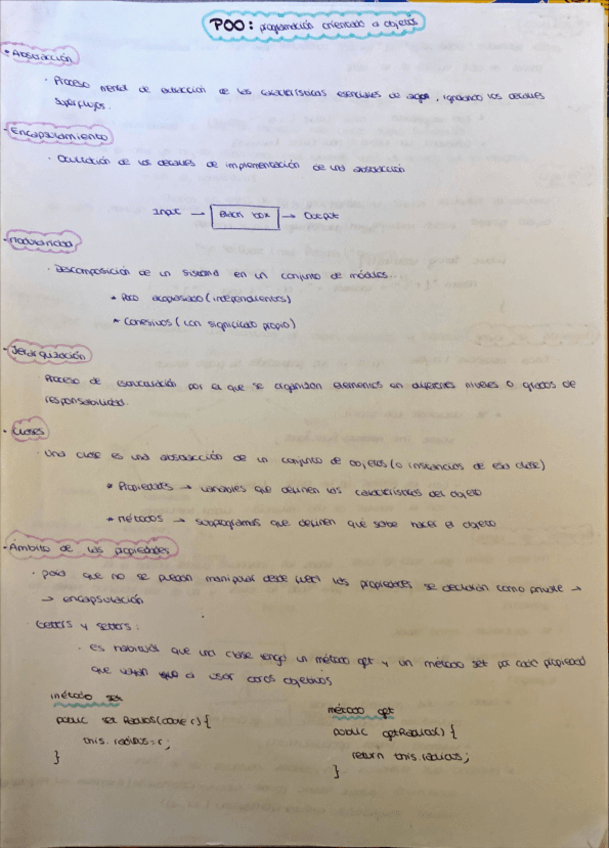 POO: programación orientada a objetos
• Abstracción
· Proceso mental de extracción de las características esenciales de algo, ignorando los detalles
superfluos.
· Encapsulamiento
· Ocultación de los detalles de implementación de una abstracción
Input → Black box → Output
· Modularidad
· Descomposición de un sistema en un conjunto de módulos...
* Poco acoplados (independientes)
* Cohesivos (con significado propio)
· Jerarquización
Proceso de estructuración por el que se organizan elementos en diferentes niveles o grados de
responsabilidad.
· Clases
· Una clase es una abstracción de un conjunto de objetos (o instancias de esa clase)
* Propiedades → variables que definen las características del objeto
* Métodos → subprogramas que definen que sabe hacer el objeto
· Ámbito de las propiedades
· Para que no se puedan manipular desde fuera las propiedades, se declaran como private →
→ encapsulación
· Getters y setters:
· es habitual que una clase tenga un método get y un método set por cada propiedad
que vayan a usar otros objetivos
método set
public set Radius(double r) {
this.radius=r;
}
método get
public getRadius() {
return this.radius;
}